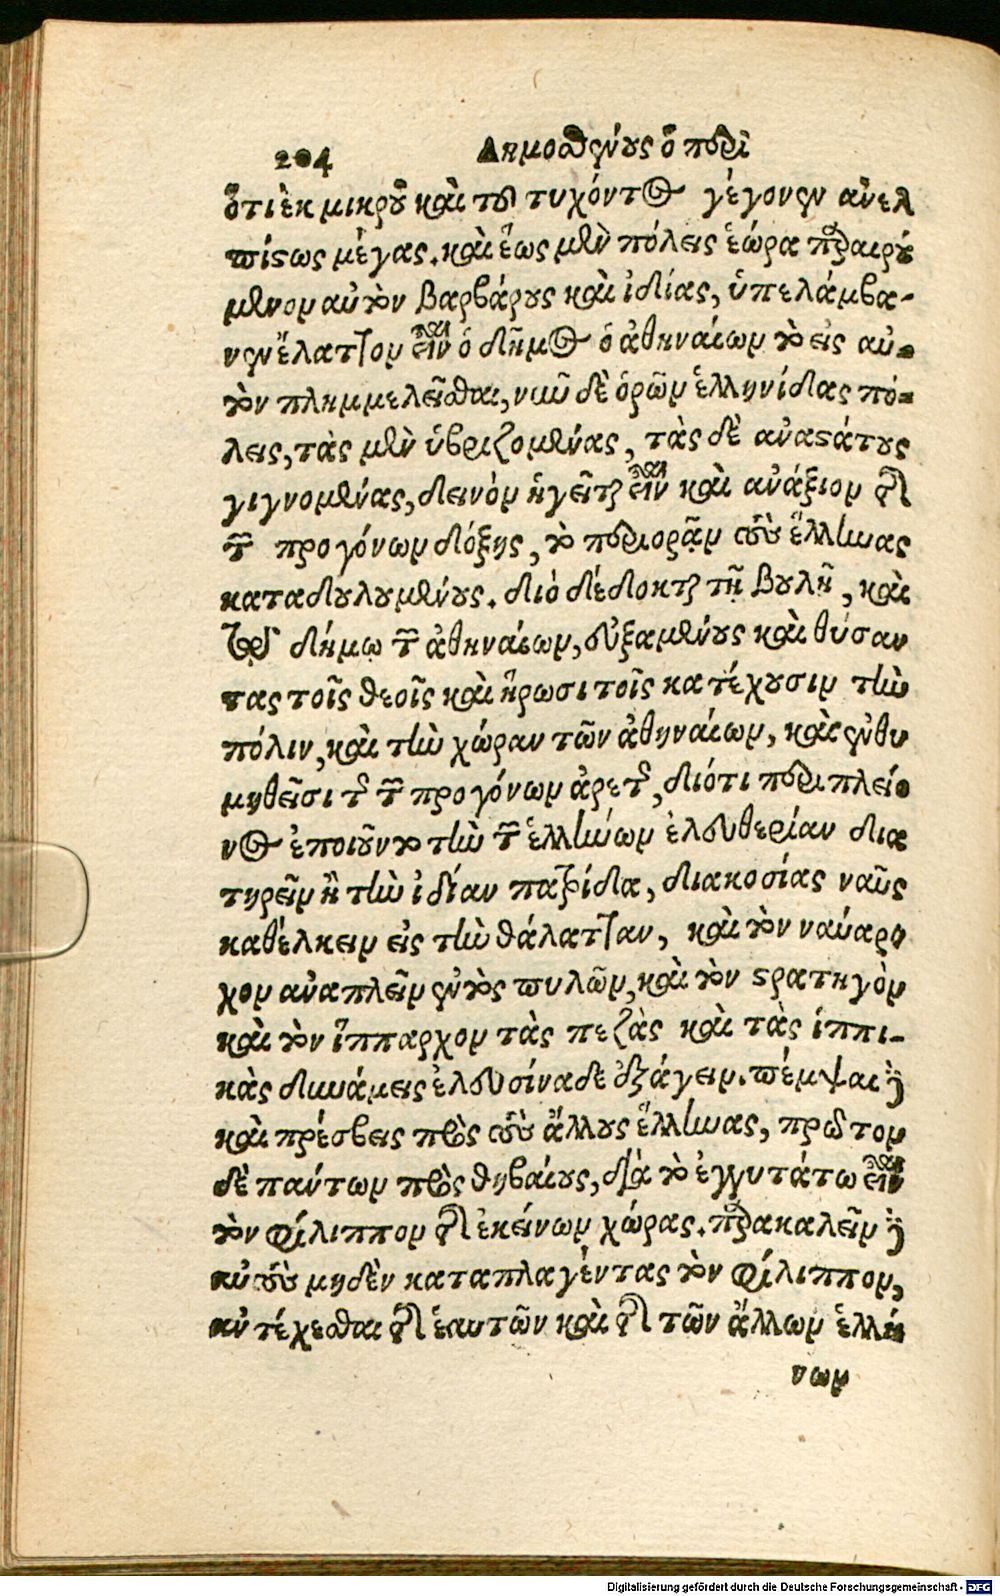 204 Δημοσθένους ὁ περὶ
ὅτι ἐκ μικροῦ καὶ τοῦ τυχόντος γέγονεν ἀνελ
πίστως μέγας. καὶ ἕως μὲν πόλεις ἑώρα παραιρού
μενον αὐτὸν βαρβάρους καὶ ἰδίας, ὑπελάμβα-
νεν ἔλαττον εἶναι ὁ δῆμος ὁ ἀθηναίων τὸ εἰς αὑ-
τὸν πλημμελεῖσθαι, νῦν δὲ ὁρῶν ἑλληνίδας πό-
λεις, τὰς μὲν ὑβριζομένας, τὰς δὲ ἀναστάτους
γιγνομένας, δεινὸν ἡγεῖται εἶναι καὶ ἀνάξιον τῆς
τῶν προγόνων δόξης, τὸ περιορᾷν τοὺς ἕλληνας
καταδουλουμένους. διὸ δέδοκται τῇ βουλῇ, καὶ
τῷ δήμῳ τῶν ἀθηναίων, εὐξαμένους καὶ θύσαν
τας τοῖς θεοῖς καὶ ἥρωσι τοῖς κατέχουσι τὴν
πόλιν, καὶ τὴν χώραν τῶν ἀθηναίων, καὶ ἐνθυ
μηθεῖσι τῆς τῶν προγόνων ἀρετῆς, διότι περὶ πλείο
νος ἐποιοῦντο τὴν τῶν ἑλλήνων ἐλευθερίαν δια
τηρεῖν ἢ τὴν ἰδίαν πατρίδα, διακοσίας ναῦς
καθέλκειν εἰς τὴν θάλατταν, καὶ τὸν ναύαρ
χον ἀναπλεῖν ἐντὸς πυλῶν, καὶ τὸν στρατηγὸν
καὶ τὸν ἵππαρχον τὰς πεζὰς καὶ τὰς ἱππι-
κὰς δυνάμεις ἐλευσίναδε ἐξάγειν. πέμψαι δὲ
καὶ πρέσβεις πρὸς τοὺς ἄλλους ἕλληνας, πρῶτον
δὲ πάντων πρὸς θηβαίους, διὰ τὸ ἐγγυτάτω εἶναι
τὸν φίλιππον τῆς ἐκείνων χώρας. παρακαλεῖν δὲ
αὐτοὺς μηδὲν καταπλαγέντας τὸν φίλιππον,
ἀντέχεσθαι τῆς ἑαυτῶν καὶ τῆς τῶν ἄλλων ἑλλή
νων
Digitalisierung gefördert durch die Deutsche Forschungsgemeinschaft - DFG